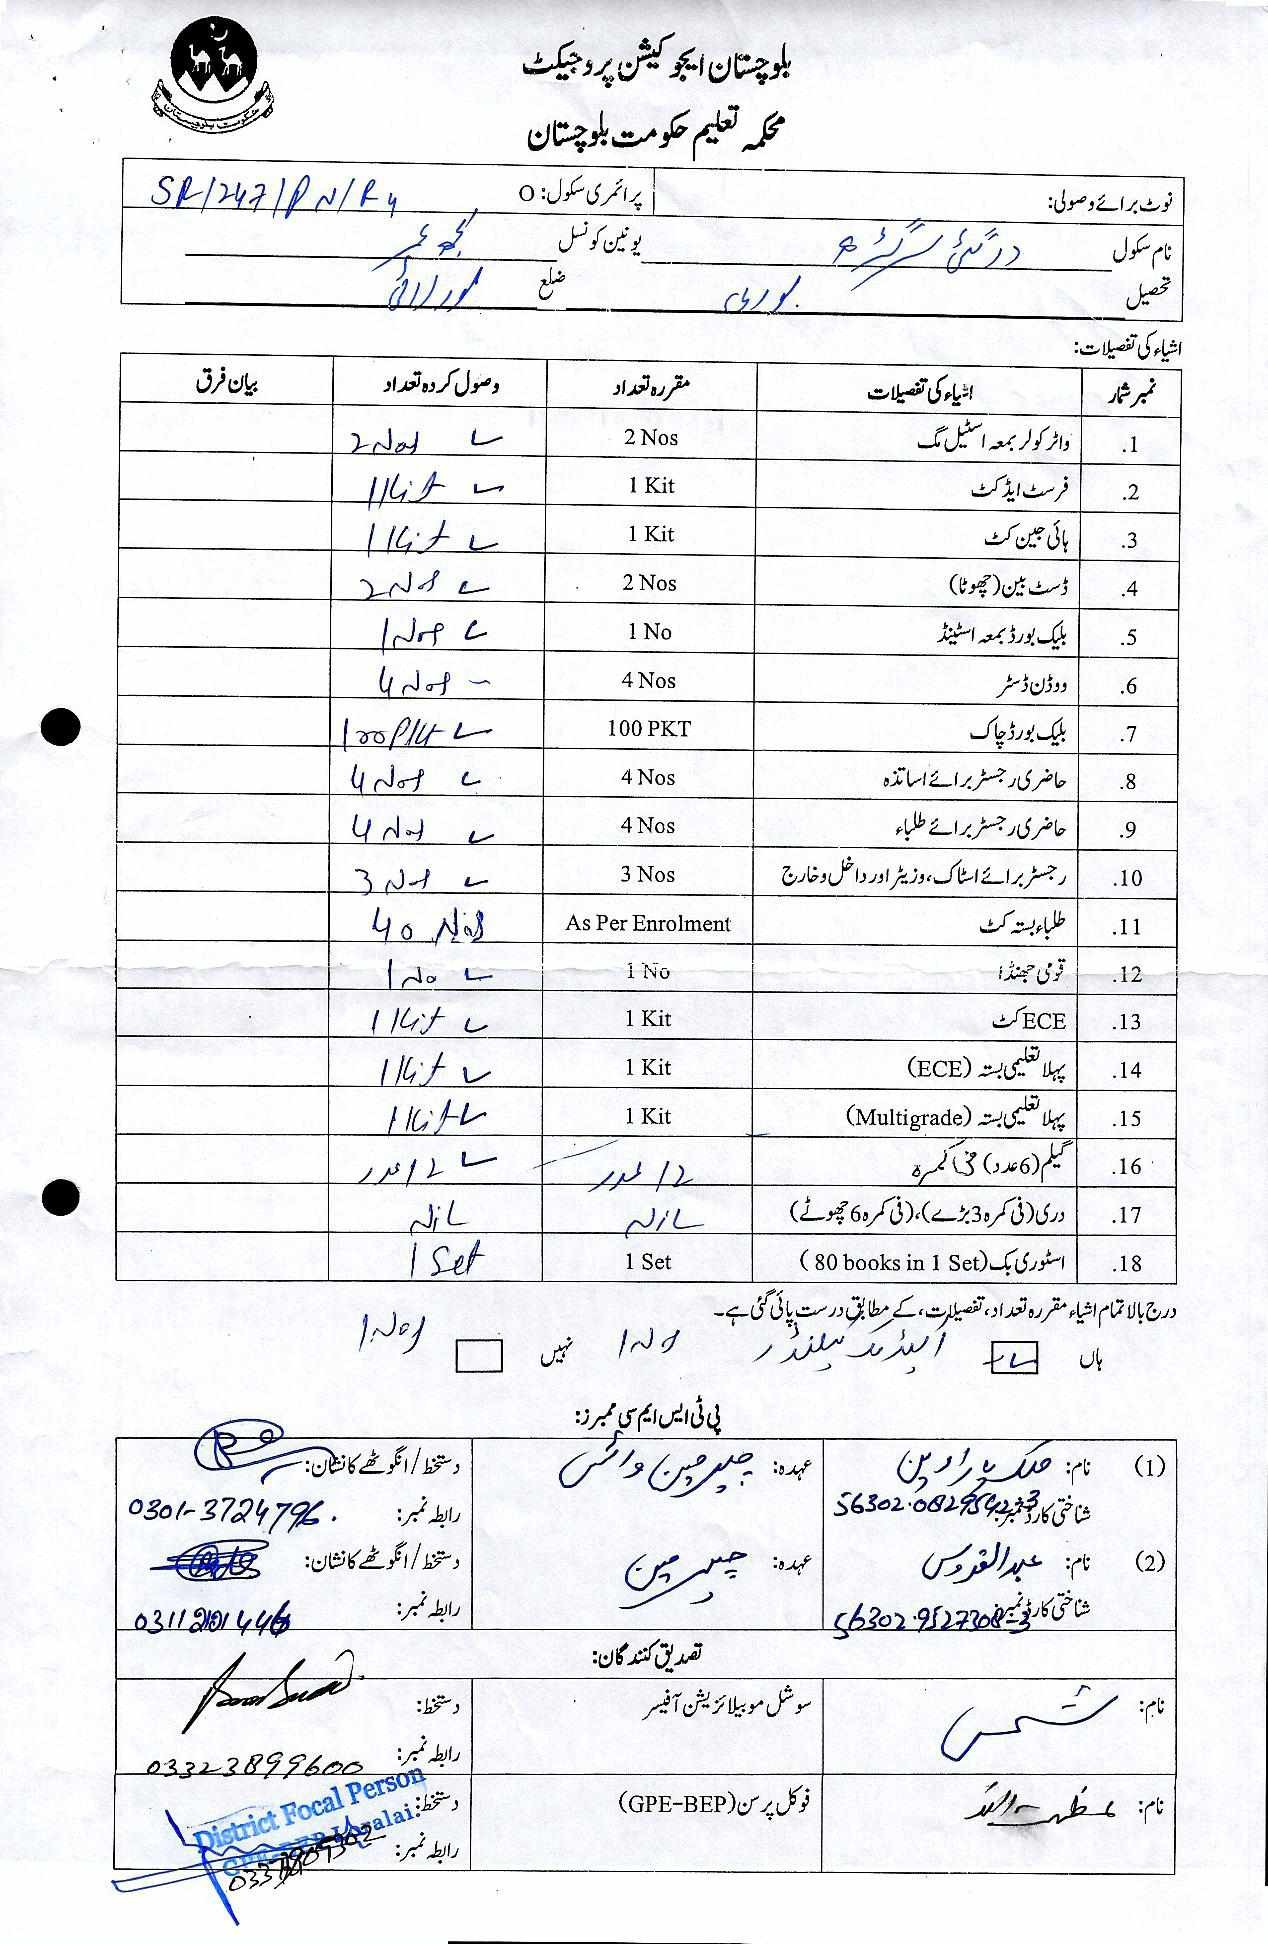 حکومت بلوچستان
بلوچستان ایجوکیشن پروجیکٹ
محکمہ تعلیم حکومت بلوچستان
نوٹ برائے وصولی: پرائمری سکول: O
نام سکول یونین کونسل
تحصیل لورلائی ضلع لورالائی
اشیاء کی تفصیلات:
نمبر شمار اشیاء کی تفصیلات مقررہ تعداد وصول کردہ تعداد بیان فرق
1. واٹر کولر بمعہ اسٹیل مگ 2 Nos 2 Nos
2. فرسٹ ایڈ کٹ 1 Kit 1 Kit
3. ہائی جین کٹ 1 Kit 1 Kit
4. ڈسٹ بین (چھوٹا) 2 Nos 2 Nos
5. بلیک بورڈ بمعہ اسٹینڈ 1 No 1 Nos
6. ووڈن ڈسٹر 4 Nos 4 Nos
7. بلیک بورڈ چاک 100 PKT 100 Pkt
8. حاضری رجسٹر برائے اساتذہ 4 Nos 4 Nos
9. حاضری رجسٹر برائے طلباء 4 Nos 4 Nos
10. رجسٹر برائے اسٹاک، وزیٹر اور داخل و خارج 3 Nos 3 Nos
11. طلباء بستہ کٹ As Per Enrolment 40 Nos
12. قومی جھنڈا 1 No 1 No
13. ECE کٹ 1 Kit 1 Kit
14. پہلا تعلیمی بستہ (ECE) 1 Kit 1 Kit
15. پہلا تعلیمی بستہ (Multigrade) 1 Kit 1 Kit
16. گیلم (6 عدد) فی کمرہ 12 عدد 12 عدد
17. دری (فی کمرہ 3 بڑے)، (فی کمرہ 6 چھوٹے) Nil Nil
18. اسٹوری بک (80 books in 1 Set) 1 Set 1 Set
درج بالا تمام اشیاء مقررہ تعداد، تفصیلات، کے مطابق درست پائی گئی ہے۔
ہاں 1 No نہیں 1 Nos
پی ٹی ایس ایم سی ممبرز:
(1) نام: عہدہ: چیئرمین وائس دستخط / انگوٹھے کا نشان:
شناختی کارڈ نمبر: رابطہ نمبر: 0301-3724796
(2) نام: عبدالقدوس عہدہ: چیئرمین دستخط / انگوٹھے کا نشان:
شناختی کارڈ نمبر: 56302-9527308-3 رابطہ نمبر:
تصدیق کنندگان:
نام: شمس سوشل موبیلائزیشن آفیسر دستخط:
رابطہ نمبر: 03323899600
نام: عظمت اللہ فوکل پرسن (GPE-BEP) دستخط:
District Focal Person
GPE-BEP Loralai
رابطہ نمبر: